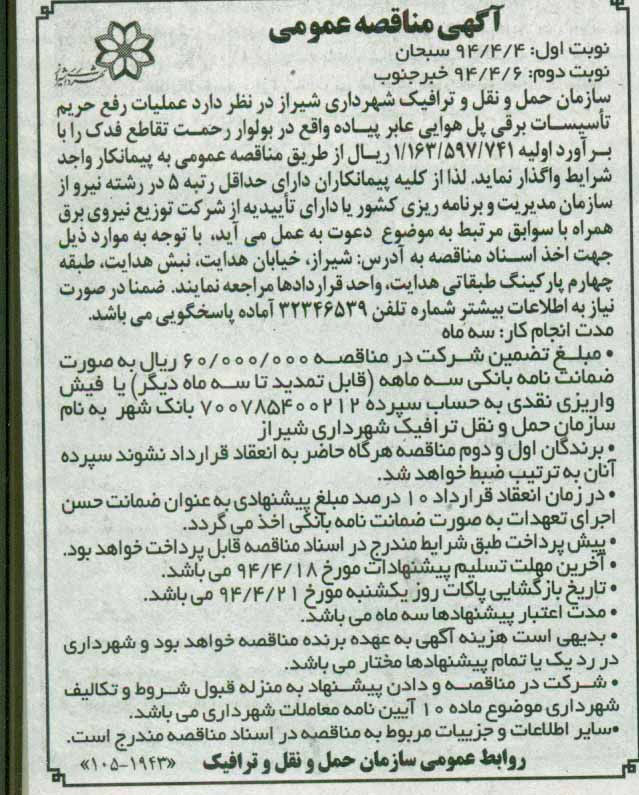 آگهی مناقصه عمومی
نوبت اول: ۹۴/۴/۴ سبحان
نوبت دوم: ۹۴/۴/۶ خبرجنوب
سازمان حمل و نقل و ترافیک شهرداری شیراز در نظر دارد عملیات رفع حریم
تأسیسات برقی پل هوایی عابر پیاده واقع در بولوار رحمت تقاطع فدک را با
برآورد اولیه ۱/۱۶۳/۵۹۷/۷۴۱ ریال از طریق مناقصه عمومی به پیمانکار واجد
شرایط واگذار نماید. لذا از کلیه پیمانکاران دارای حداقل رتبه ۵ در رشته نیرو از
سازمان مدیریت و برنامه ریزی کشور یا دارای تأییدیه از شرکت توزیع نیروی برق
همراه با سوابق مرتبط به موضوع دعوت به عمل می آید، با توجه به موارد ذیل
جهت اخذ اسناد مناقصه به آدرس: شیراز، خیابان هدایت، نبش هدایت، طبقه
چهارم پارکینگ طبقاتی هدایت، واحد قراردادها مراجعه نمایند. ضمنا در صورت
نیاز به اطلاعات بیشتر شماره تلفن ۳۲۳۴۶۵۳۹ آماده پاسخگویی می باشد.
مدت انجام کار: سه ماه
• مبلغ تضمین شرکت در مناقصه ۶۰/۰۰۰/۰۰۰ ریال به صورت
ضمانت نامه بانکی سه ماهه (قابل تمدید تا سه ماه دیگر) یا فیش
واریزی نقدی به حساب سپرده ۷۰۰۷۸۵۴۰۰۲۱۲ بانک شهر به نام
سازمان حمل و نقل ترافیک شهرداری شیراز
• برندگان اول و دوم مناقصه هرگاه حاضر به انعقاد قرارداد نشوند سپرده
آنان به ترتیب ضبط خواهد شد.
• در زمان انعقاد قرارداد ۱۰ درصد مبلغ پیشنهادی به عنوان ضمانت حسن
اجرای تعهدات به صورت ضمانت نامه بانکی اخذ می گردد.
• پیش پرداخت طبق شرایط مندرج در اسناد مناقصه قابل پرداخت خواهد بود.
• آخرین مهلت تسلیم پیشنهادات مورخ ۹۴/۴/۱۸ می باشد.
• تاریخ بازگشایی پاکات روز یکشنبه مورخ ۹۴/۴/۲۱ می باشد.
• مدت اعتبار پیشنهادها سه ماه می باشد.
• بدیهی است هزینه آگهی به عهده برنده مناقصه خواهد بود و شهرداری
در رد یک یا تمام پیشنهادها مختار می باشد.
• شرکت در مناقصه و دادن پیشنهاد به منزله قبول شروط و تکالیف
شهرداری موضوع ماده ۱۰ آیین نامه معاملات شهرداری می باشد.
•سایر اطلاعات و جزییات مربوط به مناقصه در اسناد مناقصه مندرج است.
روابط عمومی سازمان حمل و نقل و ترافیک «۱۹۴۳-۱۰۵»